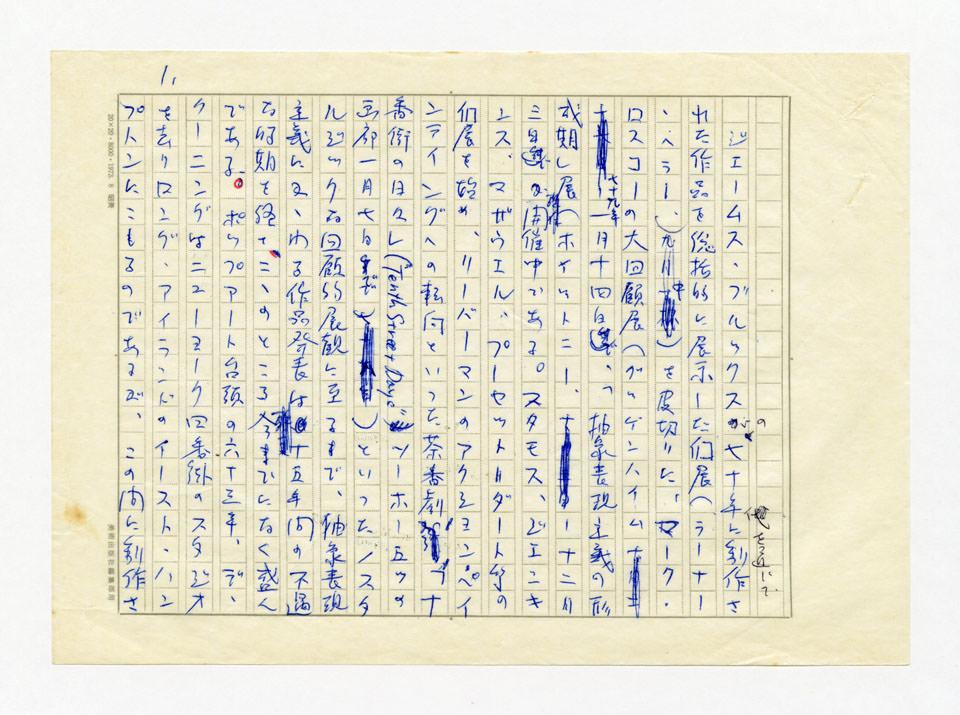 1.
ジェームス・ブルックスの七十年に制作さ
れた作品を総括的に展示した個展(ラーナー
・ヘラー、九月中)を皮切りに、マーク・
ロスコーの大回顧展(グッゲンハイム
七十九年一月十四日迄)、抽象表現主義の形
成期し展(ホイットニー、十二月
三日迄)が開催中である。スタモス、ジェンキ
ンス、マザウエル、プーセットダート等の
個展を始め、リーバーマンのアクションペイ
ンティングへの転向といった茶番劇、ブナ
番街の日々し(Tenth Street Days ソーホー五つの
画廊一月七日まで)といったノスタ
ルジックな回顧的展観に至るまで、抽象表現
主義にまつわる作品発表は十五年間の不遇
な時期を経てこゝのところ今までになく盛ん
である。ポップアート台頭の六十三年、デ・
クーニングはニューヨーク四番街のスタジオ
を去りロング・アイランドのイースト・ハン
プトンにこもるのであるが、この間に制作さ
20×20・8000・1973.8
美術出版社編集部用